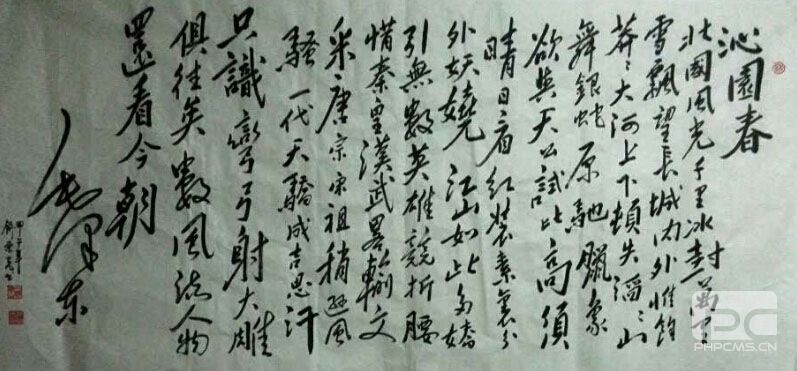 沁園春
北國風光千里冰封萬里
雪飄望長城内外惟餘
莽〻大河上下頓失滔〻山
舞銀蛇原馳臘象
欲與天公試比高須
晴日看紅裝素裹分
外妖嬈江山如此多嬌
引無數英雄競折腰
惜秦皇漢武畧輸文
采唐宗宋祖稍遜風
騷一代天驕成吉思汗
只識彎弓射大雕
俱往矣數風流人物
還看今朝
毛澤東
甲子年
PC
PHPCMS.CN